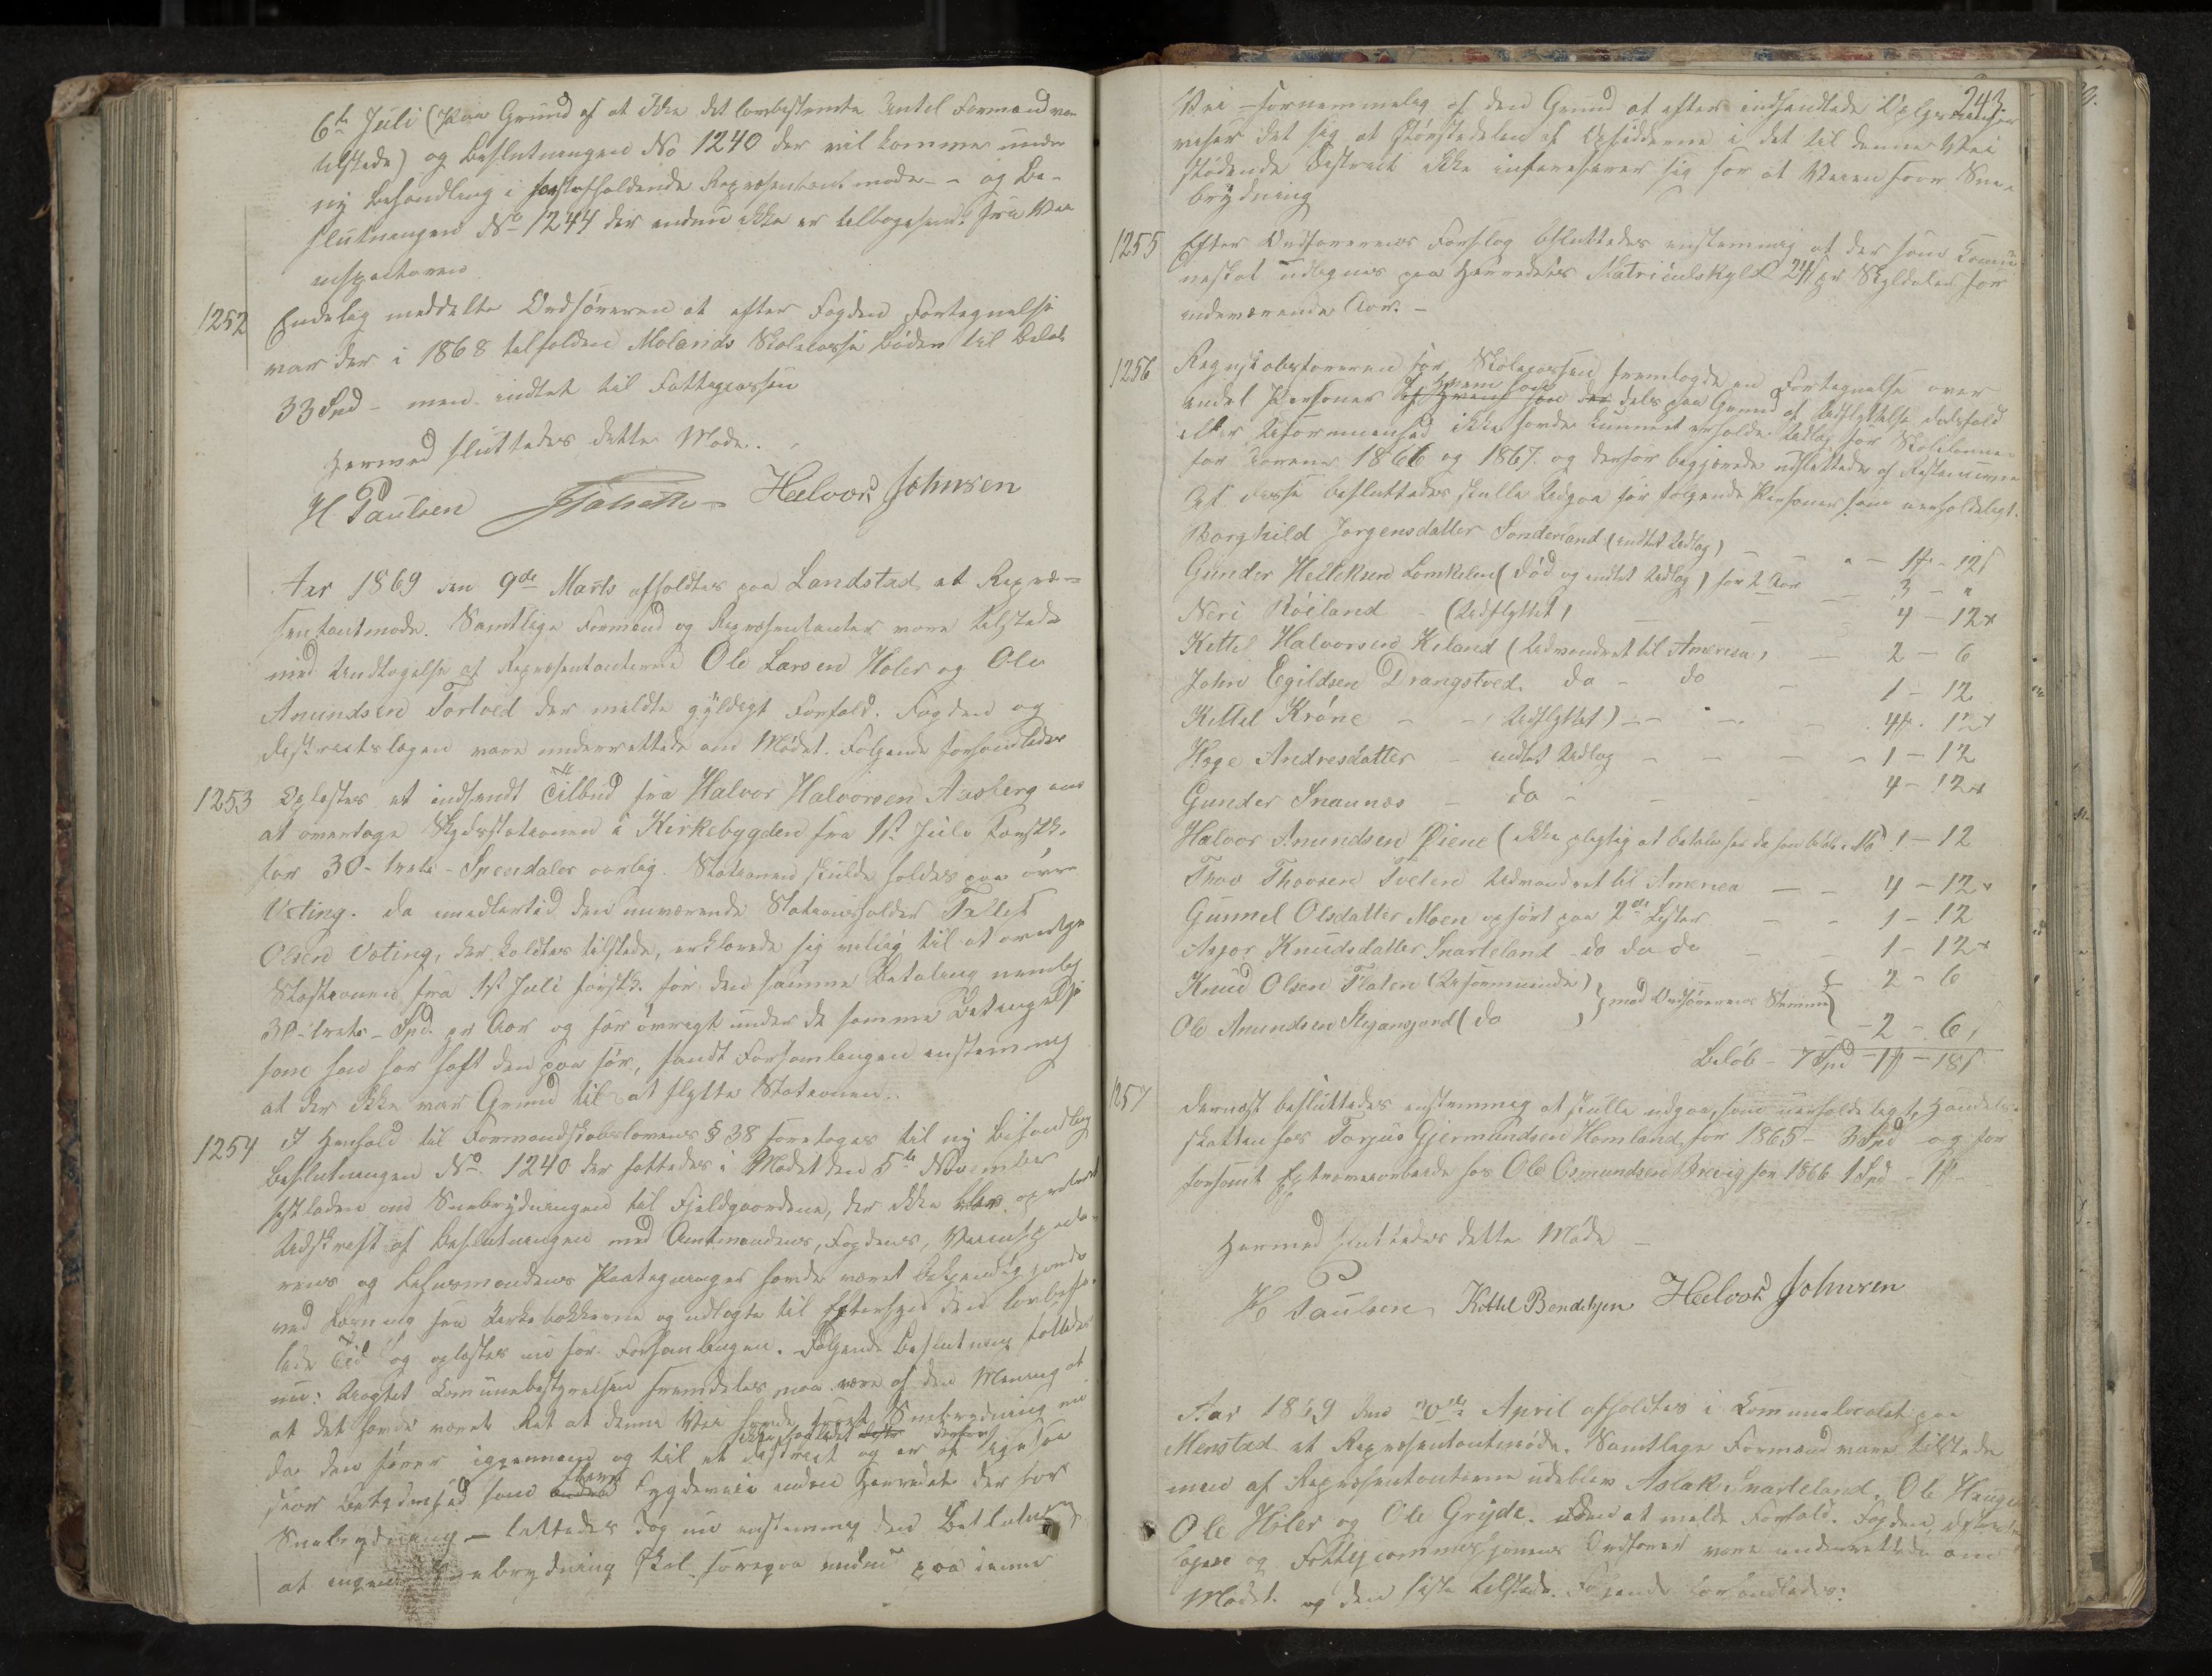 6te Juli (Paa Grund af at ikke det lovbestemte Antal Formænd var
tilstede) og Beslutningen No 1240 der vil komme under
ny Behandling i førstafholdende Repræsentantmøde - og Be-
slutningen No 1244 der endnu ikke er tilbagesendt fra Vei
inspecteuren
1252 Endelig meddelte Ordføreren at efter Fogdens Fortegnelse
var der i 1868 tilfalden Molands Skolecasse Bøder til Beløb
33 Spd - men intet til Fattigcassen
Hermed sluttedes dette Møde.
H Paulsen Halvor Johnsen
Aar 1869 den 9de Marts afholdtes paa Landstad et Repræ-
sentantmøde. Samtlige Formænd og Repræsentanter vare tilstede
med Undtagelse af Repræsentanterne Ole Larsen Høler og Ole
Anundsen Tortved der meldte gyldigt Forfald. Fogden og
Distrectslægen vare underrettede om Mødet. Følgende forhandledes
1253 Oplæstes et indsendt Tilbud fra Halvor Halvorsen Aasberg om
at overtage Skydsstationen i Kirkebygden fra 1st Juli førstk.
for 30 - treti - Speciedaler aarlig. Stationen skulde holdes paa øvre
Veting. Da imidlertid den nuværende Stationsholder Tellef
Olsen Veting, der kaldtes tilstede, erklærede sig villig til at overtage
Stationen fra 1st Juli førstk. for den samme Betaling nemlig
30 - treti - Spd. pr Aar og for øvrigt under de samme Betingelser
som han har haft den paa før, fandt Forsamlingen enstemmig
at der ikke var Grund til at flytte Stationen.
1254 I Henhold til Formandskabslovens § 38 foretoges til ny Behandling
Beslutningen No 1240 der fattedes i Mødet den 5te November
sidstleden om Snebrydningen til Fjeldgaardene, der ikke blev approberet
Udskrift af Beslutningen med Amtmandens, Fogdens, Veiinspecteu-
rens og Lensmandens Paategninger havde været bekjendtgjorde
ved Læsning fra Kirkebakkerne og udlagte til Eftersyn den lovbefa-
lede Tid og oplæstes nu for Forsamlingen. Følgende Beslutning fattedes
nu: Uagtet Communebestyrelsen fremdeles maa være af den Mening at
at det havde været Ret at denne Vei havde faaet Snebrydning
da den fører igjennem og til et District og er af ligesaa
stor Betydenhed som flere Bygdeveie inden Herredet der har
Snebrydning - fattedes dog nu enstemmig den Beslutning
at ingen Snebrydning skal foregaa endnu paa denne
243.
Vei - fornemmelig af den Grund at efter indhentede Oplysninger
viser det sig at Størstedelen af Opsidderne i det til denne Vei
stødende District ikke interesserer sig for at Veien faar Sne-
brydning
1255 Efter Ordførerens Forslag besluttedes enstemmig at der som Commu-
neskat udlignes paa Herredets Matriculskyld 24 ß pr Skylddaler for
indeværende Aar. -
1256 Regnskabsføreren for Skolecassen fremlagde en Fortegnelse over
endel Personer af hvem som dels paa Grund af Udflyttelse dødsfald
eller Uformuenhed ikke havde kunnet erholde Udlæg for Skolelønnen
for Aarene 1866 og 1867. og derfor begjærede udslettede af Restancerne
Af disse besluttedes skulle udgaa for følgende Personer som uerholdeligt.
Borghild Jørgensdatter Sønderland (intet Udlæg) - - - 1 - 12 ß
Gunder Helleksen Lomkelen (død og intet Udlæg) for 2 Aar - 3 - "
Neri Røiland - (Udflyttet) - - 4 - 12
Kittel Halvorsen Kiland (Udvandret til America) - 2 - 6
John Egildsen Drangstved. do - do - 1 - 12
Kittel Krône - - (Udflyttet) - - - 4 - 12
Hæge Andresdatter - intet Udlæg - - - - 1 - 12
Gunder Snaunæs - do - - - 4 - 12
Halvor Anundsen Øiene (ikke pligtig at betale 1 - 12
Thov Thovsen Tveten Udvandret til America - - 4 - 12
Gunnel Olsdatter Moen opført paa 2de Lister - - 1 - 12
Asjor Knudsdatter Snarteland - do do do - - 1 - 12
Knud Olsen Flaten (Uformuende) } mod Ordførerens Stemme { 2 - 6
Ole Anundsen (do ) - 2 - 6
Beløb - 7 Spd - 1 - 18 ß
1257 Dernæst besluttedes enstemmig at skulle udgaa, som uerholdeligt, Handels-
skatten hos Torjus Gjermundsen Homland for 1865 - 3 Spd og for
forsømt Extraveiarbeide hos Ole Osmundsen Brevig for 1866 1 Spd - 1
Hermed sluttedes dette Møde -
H Paulsen Kittel Bendiksen Halvor Johnsen
Aar 1869 den 20de April afholdtes i Communelocalet paa
Menstad et Repræsentantmøde. Samtlige Formænd vare tilstede
men af Repræsentanterne udeblev Aslak Snarteland. Ole Hauge
Ole Høler og Ole Gryde. uden at melde Forfald. Fogden, Distrects-
lægen og Fattigcommissionens Ordfører vare underrettede om
Mødet. og den sidste tilstede. Følgende forhandledes: